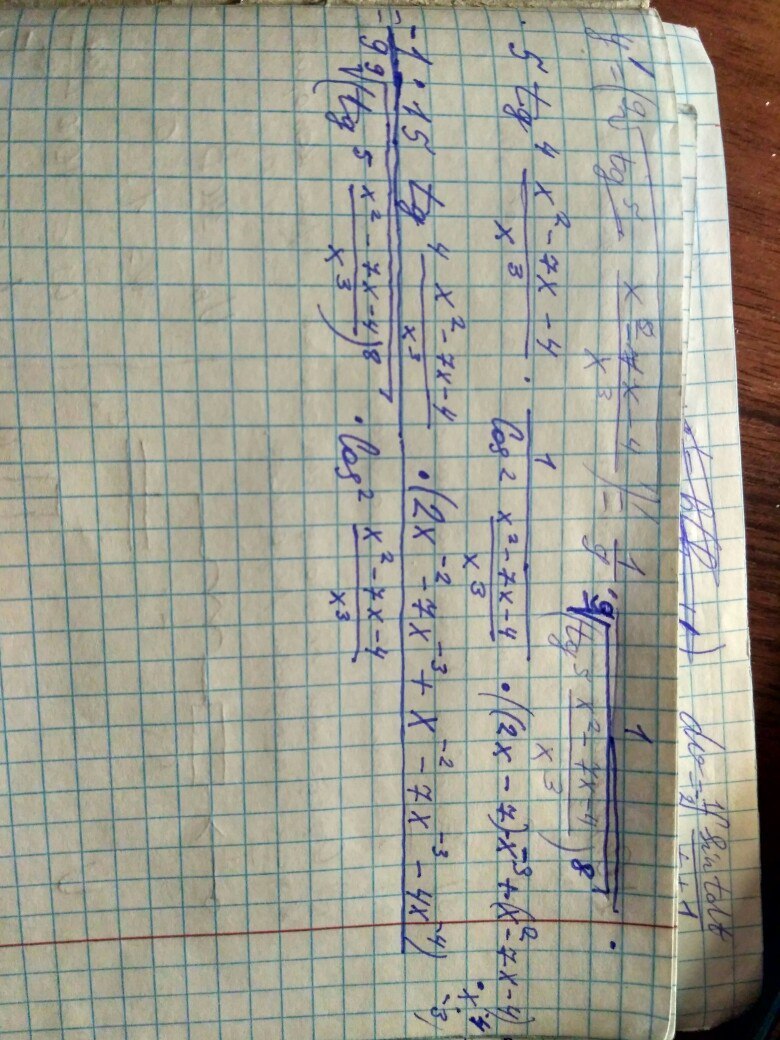 y' = (⁹√(tg⁵ (x² - 7x - 4)/x³))' = 1/9 · 1/⁹√((tg⁵ (x² - 7x - 4)/x³)⁸) ·
· 5 tg⁴ (x² - 7x - 4)/x³ · 1/(cos² (x² - 7x - 4)/x³) · ((2x - 7)·x⁻³ + (x² - 7x - 4)·
· x⁻⁴ · -3)
= -1 · 15 tg⁴ (x² - 7x - 4)/x³ · (2x⁻² - 7x⁻³ + x⁻² - 7x⁻³ - 4x⁻⁴)
9 ⁹√((tg⁵ (x² - 7x - 4)/x³)⁸) · cos² (x² - 7x - 4)/x³